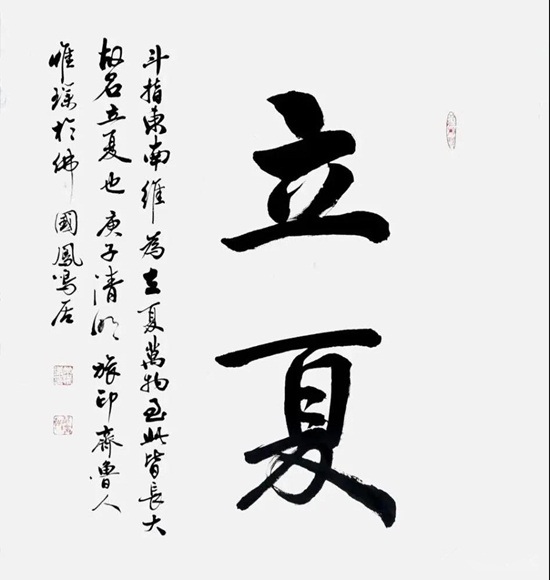 立夏
斗指東南維為立夏萬物至此皆長大
故名立夏也庚子清明旅印齊魯人
惟琛於佛國鳳鳴居